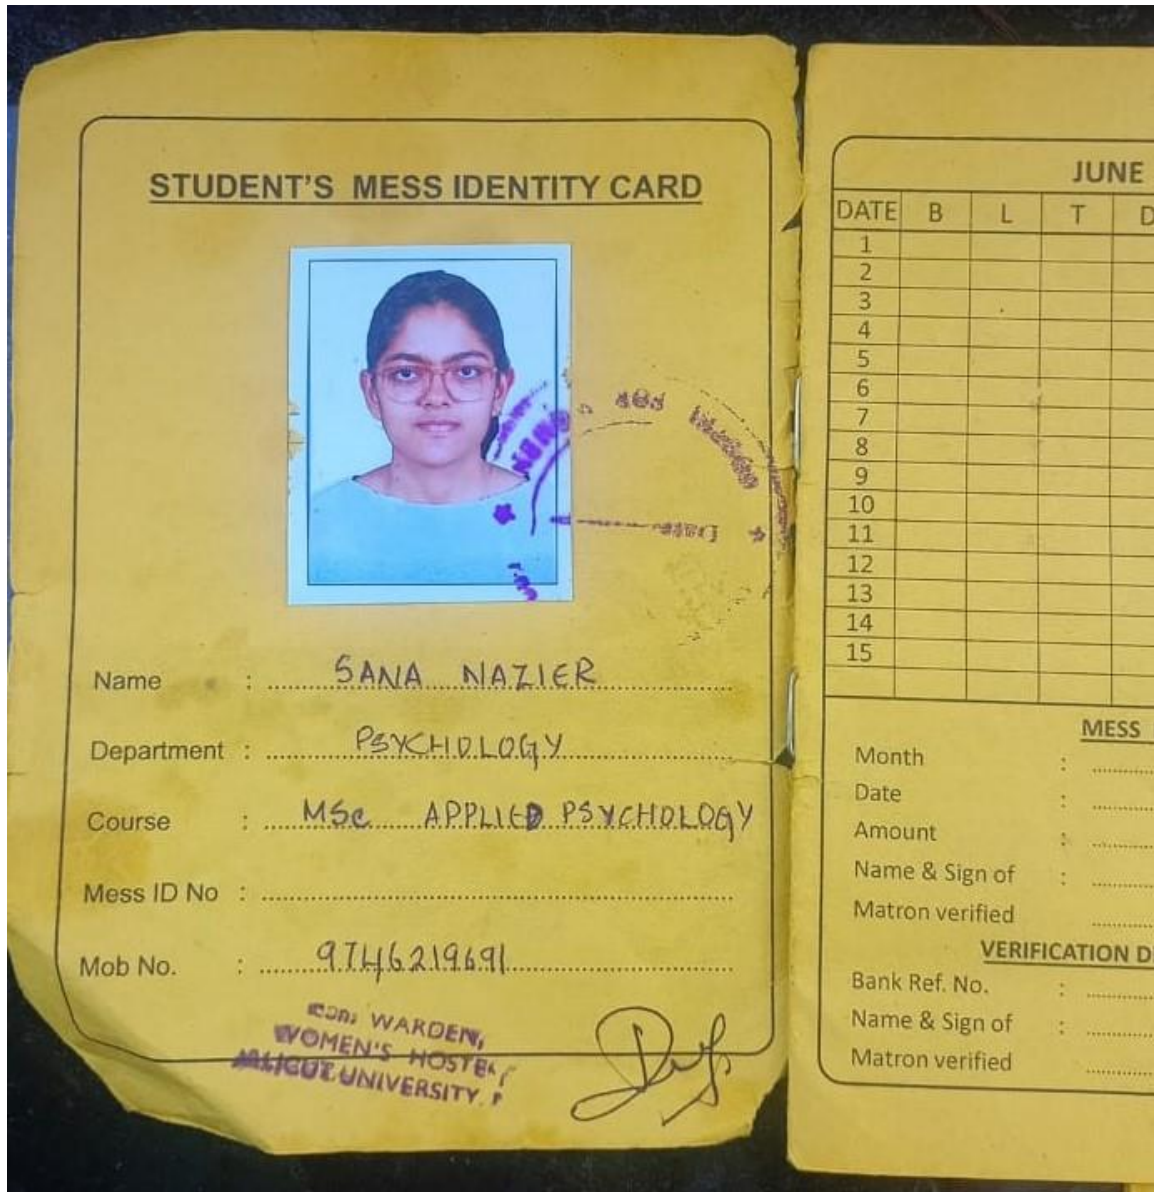 STUDENT'S MESS IDENTITY CARD
Name : SANA NAZIER
Department : PSYCHOLOGY
Course : MSc APPLIED PSYCHOLOGY
Mess ID No :
Mob No. : 9746219691
WARDEN,
WOMEN'S HOSTE
UNIVERSITY.
JUNE
DATE B L T D
1
2
3
4
5
6
7
8
9
10
11
12
13
14
15
MESS
Month :
Date :
Amount :
Name & Sign of :
Matron verified
VERIFICATION D
Bank Ref. No. :
Name & Sign of :
Matron verified